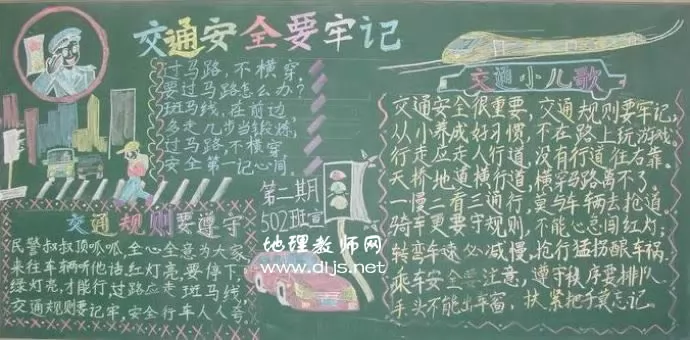 交通安全要牢记
过马路,不横穿,
要过马路怎么办?
斑马线,在前边,
多走几步当锻炼,
过马路,不横穿
安全第一记心间。
第二期
502班宣
交通规则要遵守
民警叔叔顶呱呱,全心全意为大家
来往车辆听他话红灯亮,要停下,
绿灯亮,才能行过路应走斑马线,
交通规则要记牢,安全行车人人夸。
地理教师网
www.dljs.net
交通小儿歌
交通安全很重要,交通规则要牢记,
从小养成好习惯,不在路上玩游戏。
行走应走人行道,没有行道往右靠。
天桥地道横行道,横穿马路离不了。
一慢二看三通行,莫与车辆去抢道。
骑车更要守规则,不能心急闯红灯;
转弯车速必减慢,抢行猛拐酿车祸。
乘车安全要注意,遵守秩序要排队
手头不能出车窗,扶紧把手莫忘记。